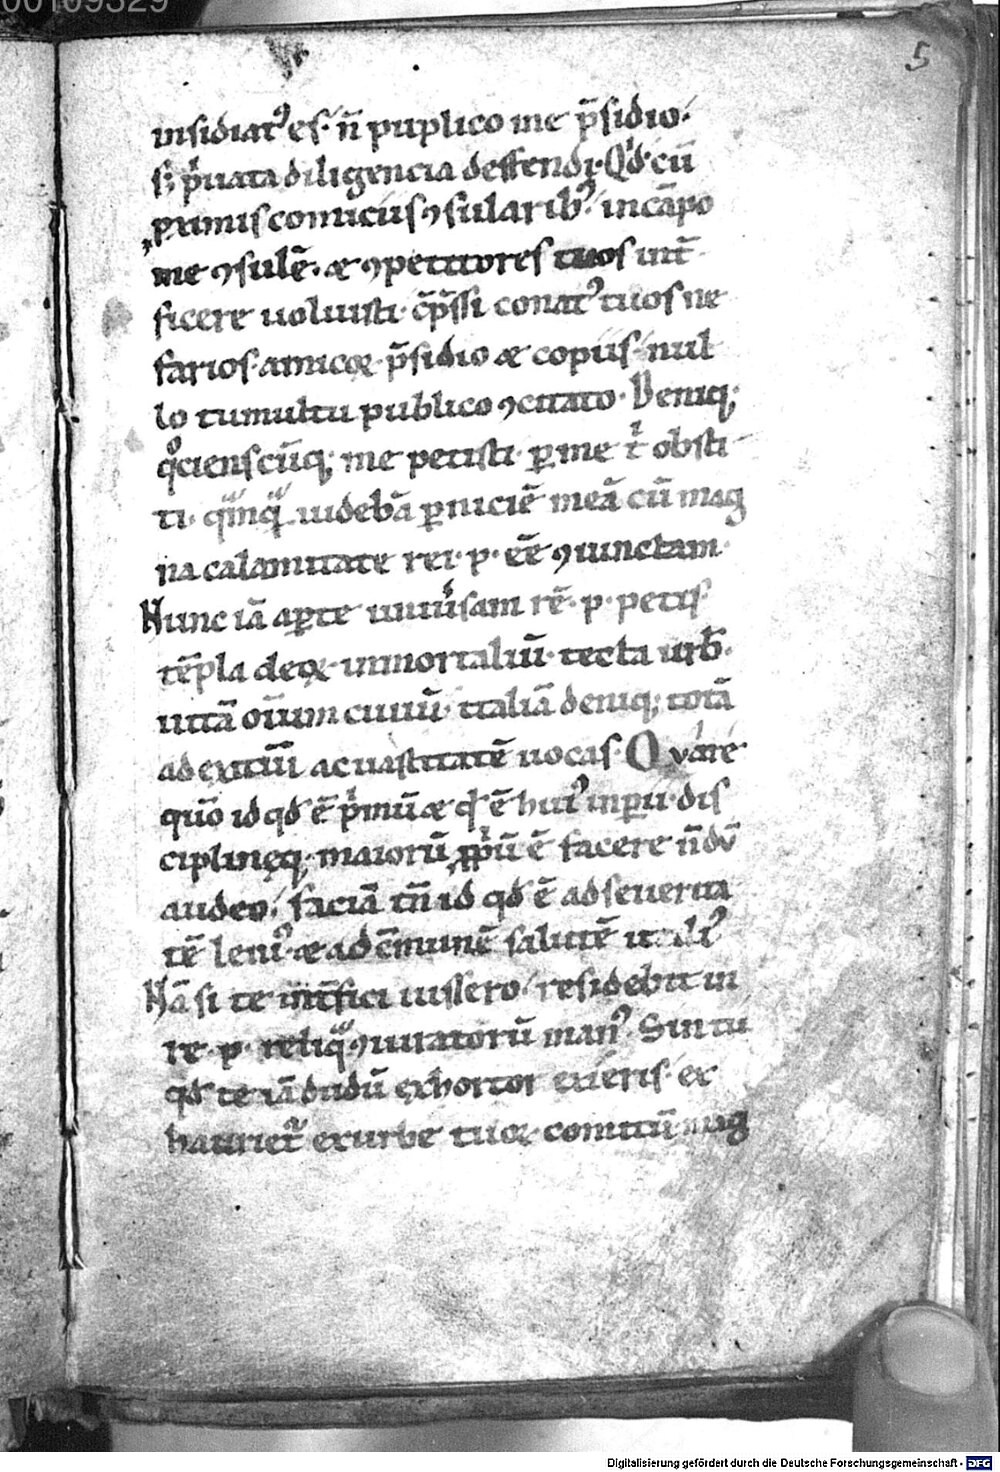 00109329
5
insidiatꝰ es· n̄ puplico me p̄sidio·
sꝫ pͥuata diligencia deffendi· Qͩ cū
primis comicius ꝯsularibꝰ· in cāpo
me ꝯsulē· æ ꝯpetitores tuos int̄
ficere uoluisti· cp̄ssi conatꝰ tuos ne
farios· amicoꝝ p̄sidio æ copiis· nul
lo tumultu publico ꝯcitato· Deniqꝫ
qͦcienscūqꝫ me petisti· ꝑ me tͥ obsti
ti· qᵃmqᵃ uidebā ꝑniciē meā cū mag
na calamitate rei· p· eē ꝯiunctam·
Nunc iā aꝑte uniuͥsam rē· p· petis·
tēpla deoꝝ inmortaliū· tecta urb̄·
uitā oīum ciuiū· italiā deniqꝫ totā
ad exitiū ac uastitatē uocas· Quare
quō id qđ ē pͥmū æ qđ ē huiꝰ inꝑii· dis
cipline̜qꝫ maiorū ꝓpͥū ē facere n̄dū
audeo· faciā tn̄ id qđ ē ad seuerita
tē leniꝰ æ ad cōmunē salutē utiliꝰ
Nā si te int̄fici iussero· residebit in
re· p· reliqᵃ ꝯiuratorū manꝰ Sin tu
qđ te iā dudū exhortor exieris· ex
haurietᷣ ex urbe tuoꝝ comitū mag
Digitalisierung gefördert durch die Deutsche Forschungsgemeinschaft - DFG